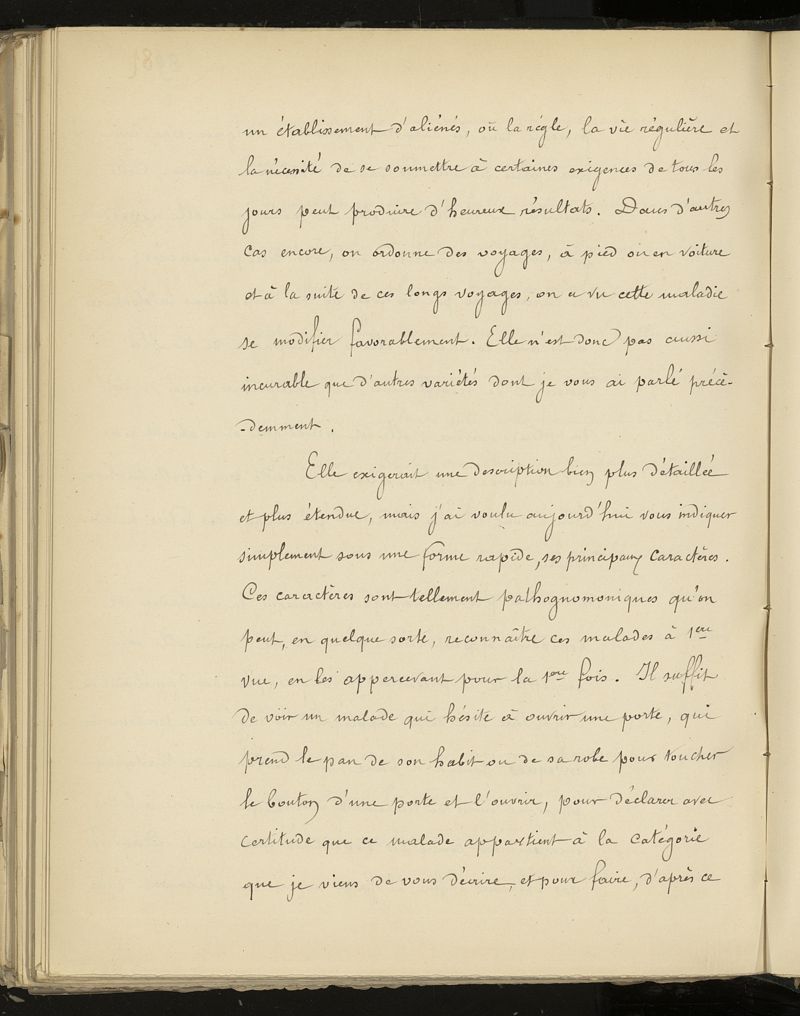 un établissement d'aliénés, où la règle, la vie régulière et
la nécessité de se soumettre à certaines exigences de tous les
jours peut produire d'heureux résultats. Dans d'autres
cas encore, on ordonne des voyages, à pied ou en voiture
et à la suite de ces longs voyages, on a vu cette maladie
se modifier favorablement. Elle n'est donc pas aussi
incurable que d'autres variétés dont je vous ai parlé précé-
-demment.
Elle exigerait une description bien plus détaillée
et plus étendue, mais j'ai voulu aujourd'hui vous indiquer
simplement sous une forme rapide, ses principaux caractères.
Ces caractères sont tellement pathognomoniques qu'on
peut, en quelque sorte, reconnaître ces malades à 1ere
vue, en les appercevant pour la 1ere fois. Il suffit
de voir un malade qui hésite à ouvrir une porte, qui
prend le pan de son habit ou de sa robe pour toucher
le bouton d'une porte et l'ouvrir, pour déclarer avec
certitude que ce malade appartient à la catégorie
que je viens de vous décrire, et pour faire, d'après ce